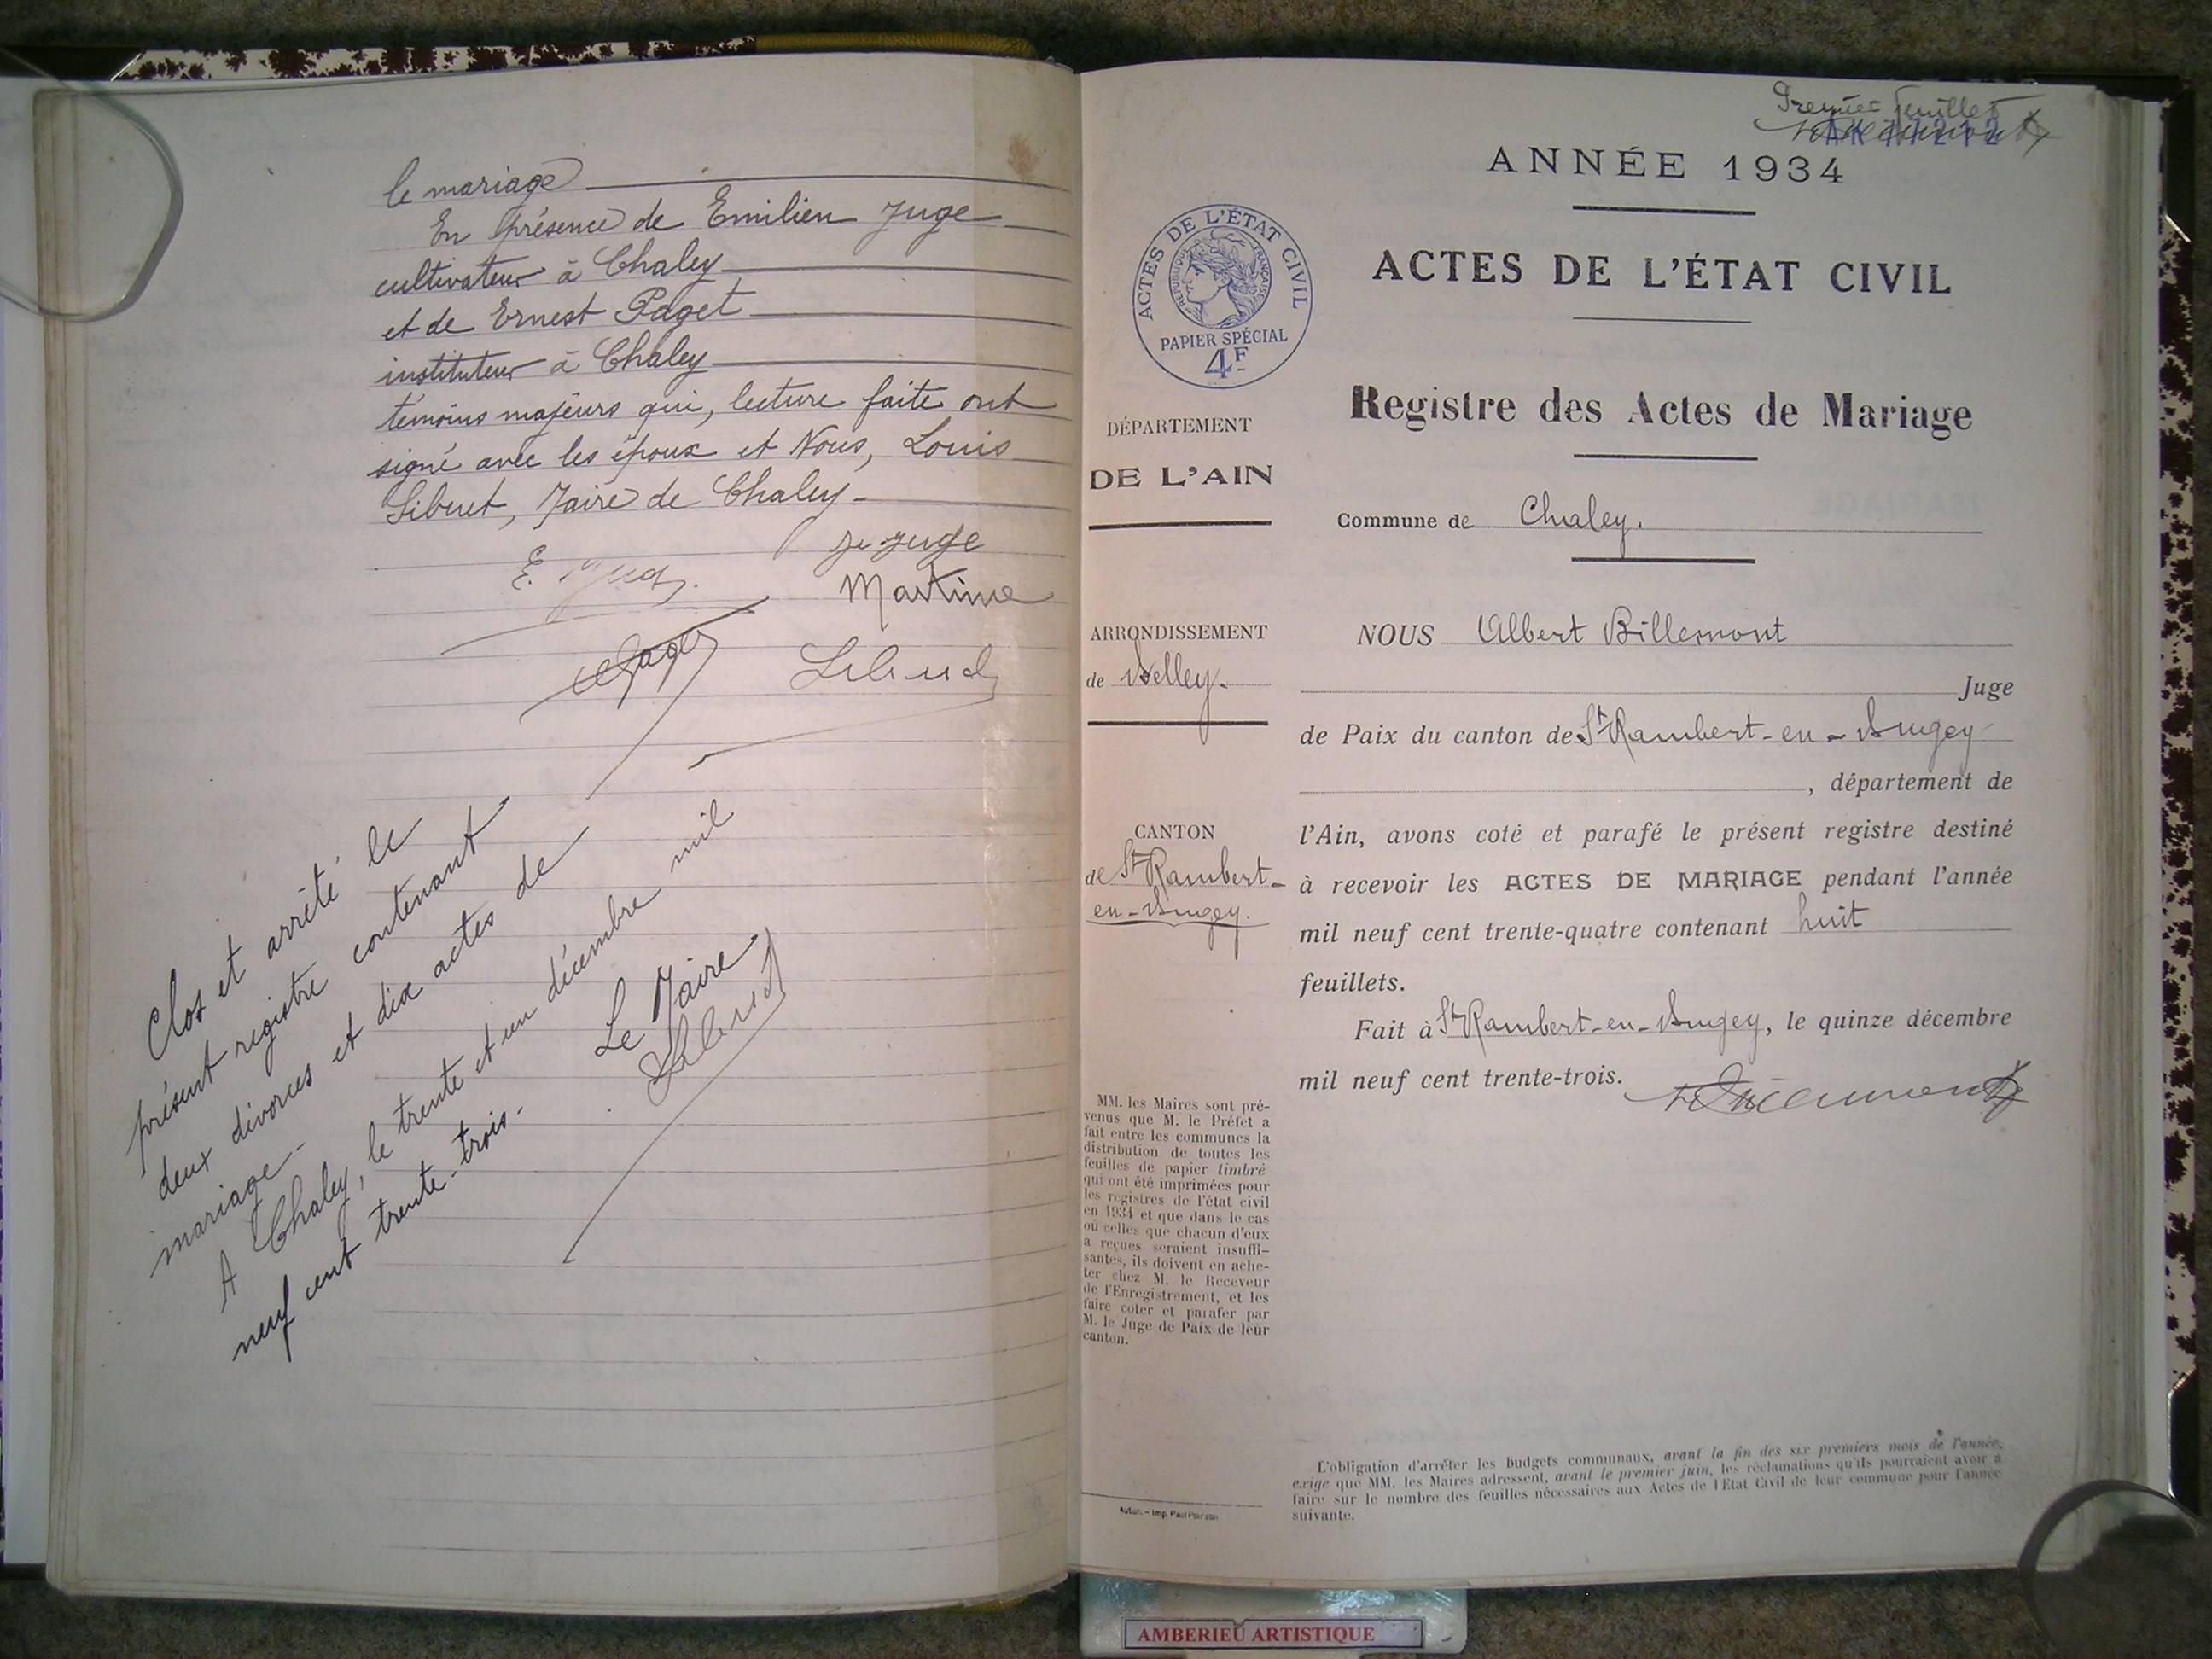 le mariage
En présence de Emilien Juge
cultivateur à Chaley
et de Ernest Paget
instituteur à Chaley
témoins majeurs qui, lecture faite ont
signé avec les époux et Nous, Louis
Sibuet, Maire de Chaley
Juge
E.
Martine
Clos et arrêté le
présent registre contenant
deux divorces et dix actes de
mariage.
A Chaley, le trente et un décembre mil
neuf cent trente-trois.
Le Maire
Premier feuillet
ANNÉE 1934
ACTES DE L'ÉTAT CIVIL
Registre des Actes de Mariage
Commune de Chaley.
ACTES DE L'ÉTAT CIVIL
RÉPUBLIQUE FRANÇAISE
PAPIER SPÉCIAL
4F
DÉPARTEMENT
DE L'AIN
ARRONDISSEMENT
de Belley.
CANTON
de St Rambert-
en-Bugey.
MM. les Maires sont pré-
venus que M. le Préfet a
fait entre les communes la
distribution de toutes les
feuilles de papier timbré
qui ont été imprimées pour
les registres de l'état civil
en 1934 et que dans le cas
où celles que chacun d'eux
a reçues seraient insuffi-
santes, ils doivent en ache-
ter chez M. le Receveur
de l'Enregistrement, et les
faire coter et parafer par
M. le Juge de Paix de leur
canton.
NOUS Albert Billemont
Juge
de Paix du canton de St Rambert-en-Bugey
, département de
l'Ain, avons coté et parafé le présent registre destiné
à recevoir les ACTES DE MARIAGE pendant l'année
mil neuf cent trente-quatre contenant huit
feuillets.
Fait à St Rambert-en-Bugey, le quinze décembre
mil neuf cent trente-trois.
L'obligation d'arrêter les budgets communaux, avant la fin des six premiers mois de l'année,
exige que MM. les Maires adressent, avant le premier juin, les réclamations qu'ils pourraient avoir à
faire sur le nombre des feuilles nécessaires aux Actes de l'Etat Civil de leur commune pour l'année
suivante.
Autun. – Imp. Paul
AMBERIEU ARTISTIQUE